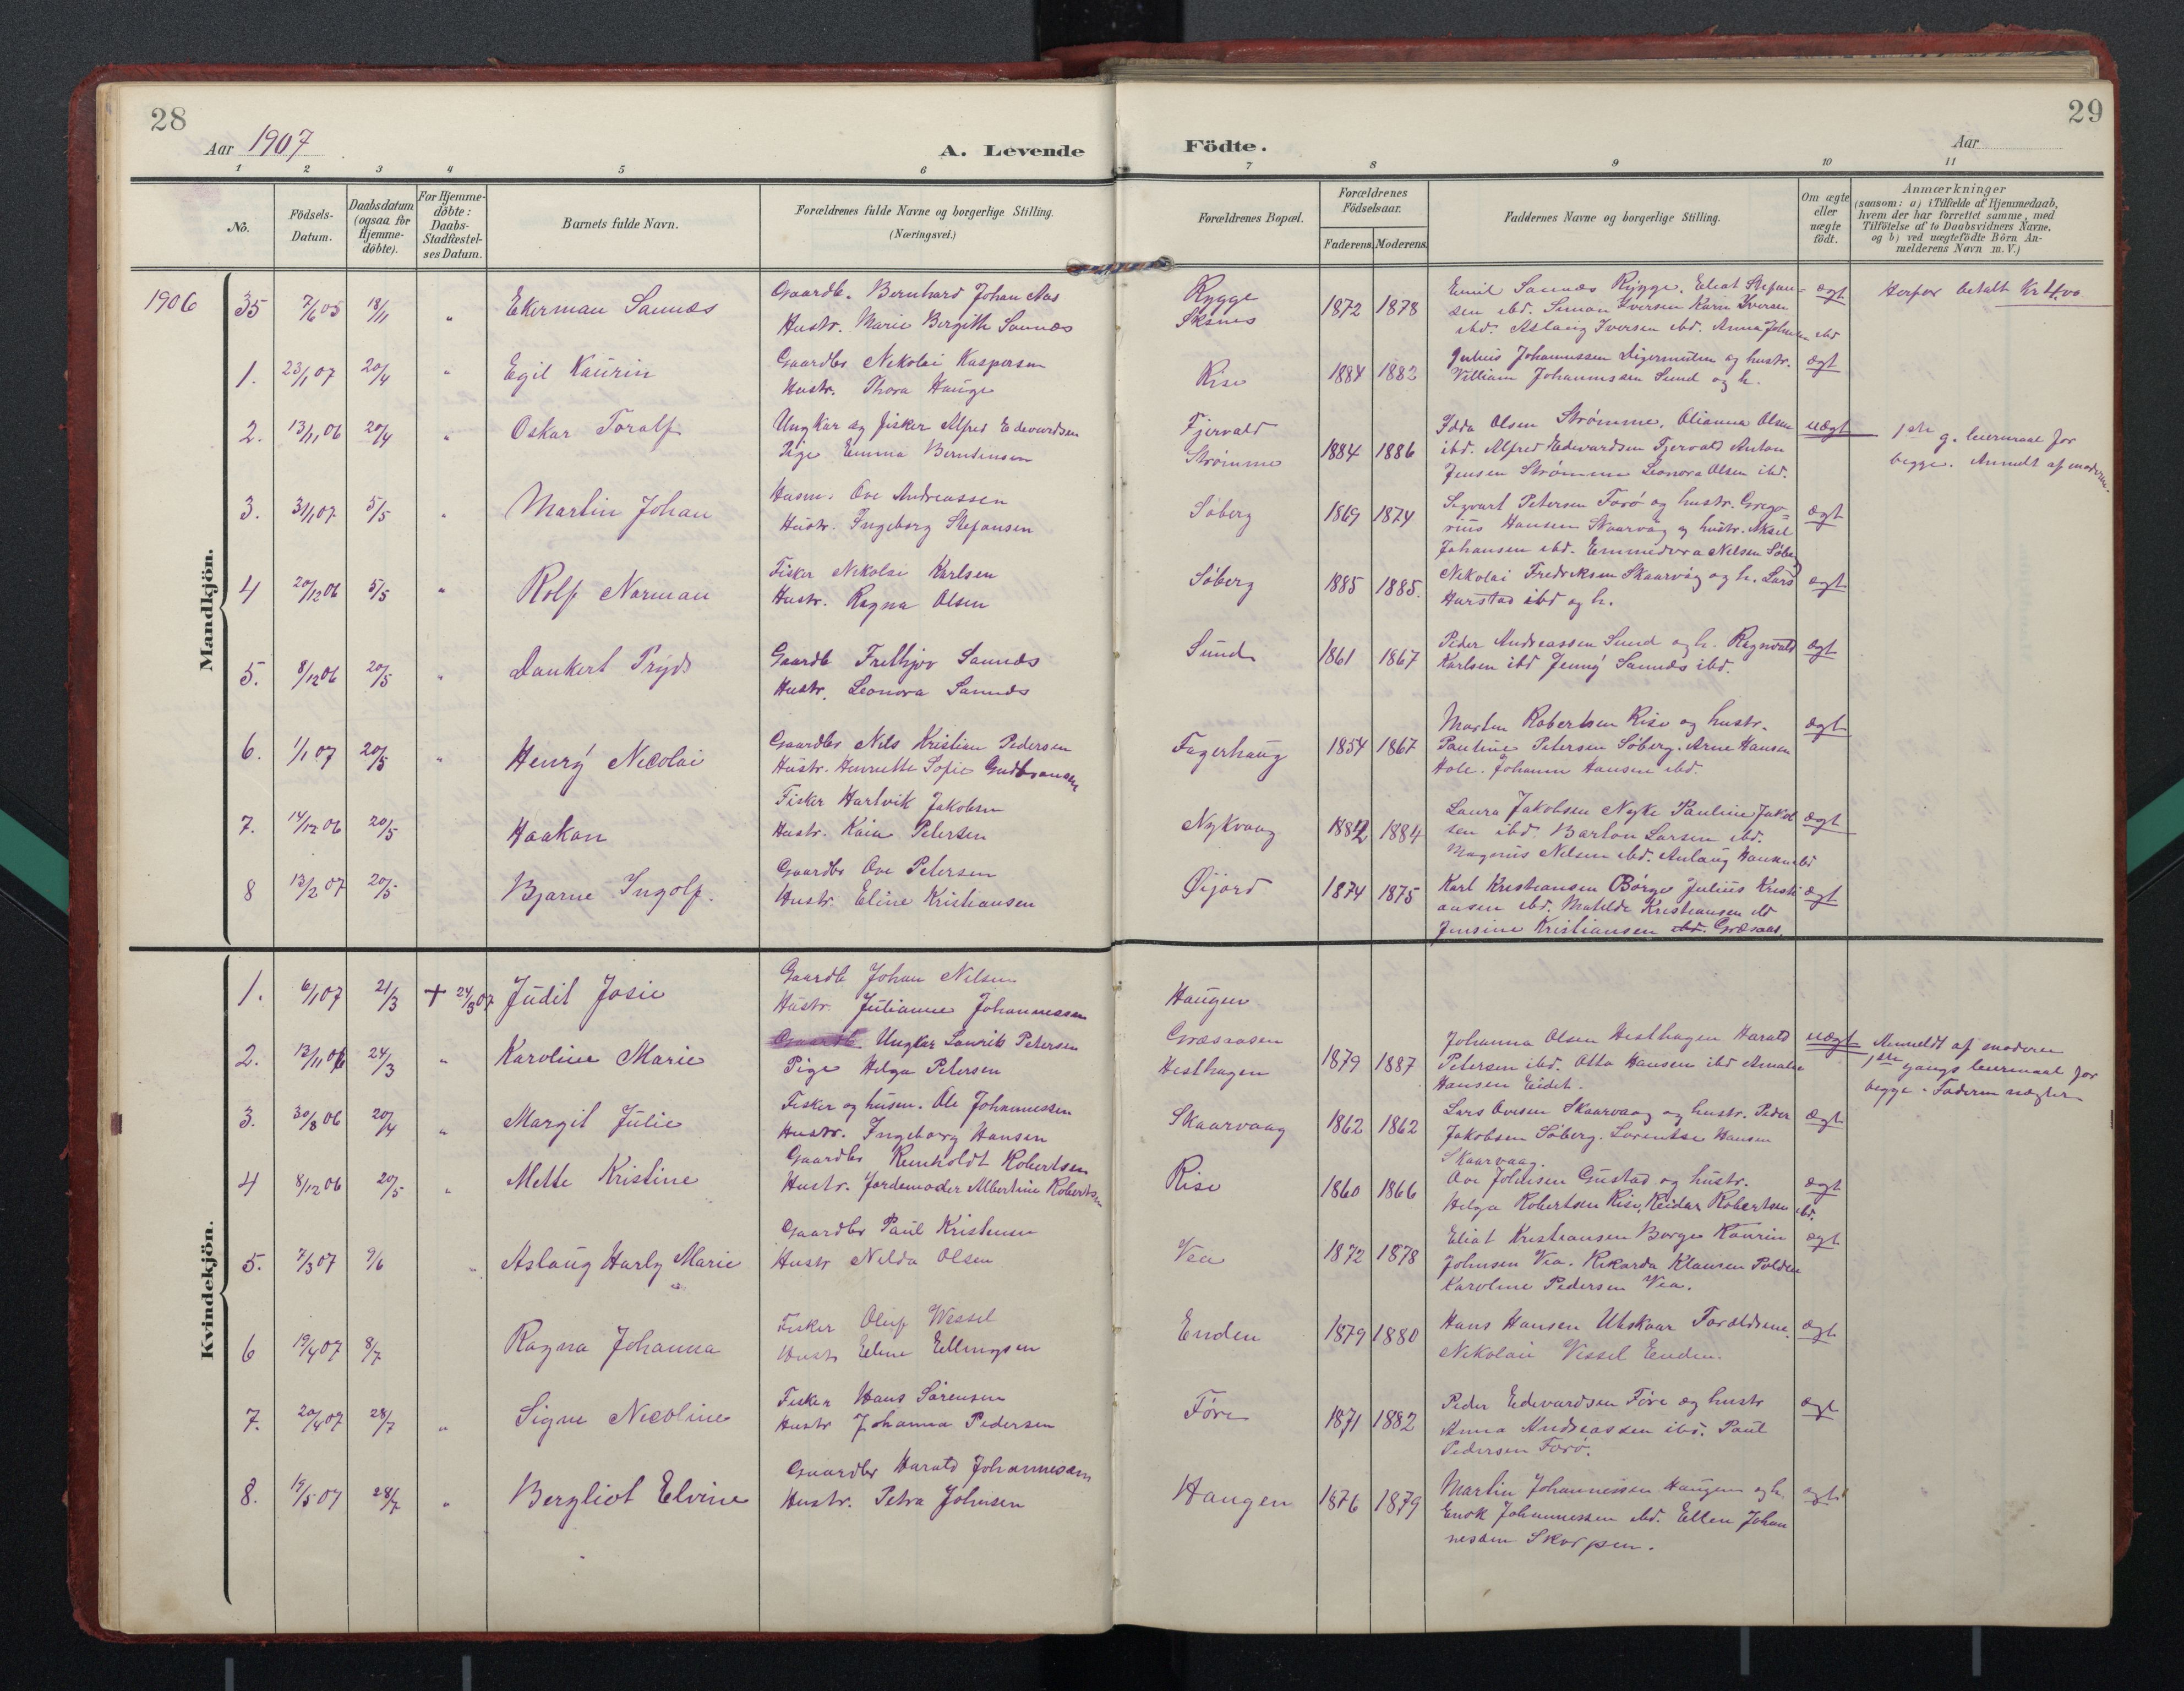 28
Aar 1907
A. Levende
Födte.
Aar
29
1 2 3 4 5 6 7 8 9 10 11
No.
Födsels-
Datum.
Daabsdatum
(ogsaa for
Hjemme-
döbte).
For Hjemme-
döbte:
Daabs-
Stadfæstel-
ses Datum.
Barnets fulde Navn.
Forældrenes fulde Navne og borgerlige Stilling.
(Næringsvei.)
Forældrenes Bopæl.
Forældrenes
Födselsaar.
Faderens. Moderens.
Faddernes Navne og borgerlige Stilling.
Om ægte
eller
uægte
födt.
Anmærkninger
(saasom: a) i Tilfælde af Hjemmedaab,
hvem der har forrettet samme, med
Tilföielse af to Daabsvidners Navne.
og b) ved uægtefödte Börn An-
melderens Navn m. V.)
Mandkjön.
1906 35 7/6 05 18/11 " Ekerman Sannes
Gaardb. Bernhard Johan Aas
Hustr. Marie Bergith Sannes
Rygge
Sksnes
1872 1878
Emil Sannes Rygge. Eliot Stefan-
sen ibd. Simon Iversen Karin Iversen
ibd. Aslaug Iversen ibd. Anna Johnsen ibd
ægt
Herfor betalt Kr 4,00
1. 23/1 07 20/4 " Egil Kaurin
Gaardbr Nikolai Kaspersen
Hustr. Thora Hauge
Rise
1884 1882
Julius Johannessen Digermulen og hustr.
Villiam Johannssen Sund og h.
ægt
2. 13/11 06 20/4 " Oskar Toralf
Ungkar og fisker Alfred Edevardsen
Pige Emma Berntensen
Fjervald
Strømme
1884 1886
Olsen Strømme. Olianna Olsen
ibd. Alfred Edevardsen Fjervald Anton
Jensen Strømme Leonora Olsen ibd.
uægt
1ste g. leiermaal for
begge. Anmeldt af moderen.
3. 31/1 07 5/5 " Martin Johan
Husm. Ove Andreassen
Hustr. Ingeborg Stefansen
Søberg
1869 1874
Sigvart Petersen Forø og hustr. Grego-
rius Hansen Skaarvåg og hustr. Aksel
Johansen ibd. Emmedora Nilsen Søberg
ægt
4 20/12 06 5/5 " Rolf Norman
Fisker Nikolai Karlsen
Hustr. Ragna Olsen
Søberg
1885 1885.
Nikolai Fredriksen Skaarvåg og h. Lars
Harstad ibd og h.
ægt
5. 8/12 06 20/5 " Dankert Pryds
Gaardb Frethjov Sannes
Hustr. Leonora Sannes
Sund
1861 1867
Peder Andreassen Sund og h. Ragnvald
Karlsen ibd Jenny Sannes ibd.
ægt
6. 1/1 07 20/5 " Henry Nicolai
Gaardbr Nils Kristian Pedersen
Hustr. Henrette Sofie Gudbransen
Fagerhaug
1854 1867
Morten Robertsen Rise og hustr.
Pauline Petersen Søberg. Arne Hansen
Hole. Johann Hansen ibd.
ægt
7. 14/12 06 20/5 Haakon
Fisker Hartvik Jakobsen
Hustr. Kaia Petersen
Nykvaag
1882 1884
Laura Jakobsen Nyke Pauline Jakob
sen ibd. Barton Larsen ibd.
Magnus Nilsen ibd. Aslaug Hansen ibd
ægt
8 13/2 07 20/5 Bjarne Ingolf.
Gaardbr Ove Petersen
Hustr. Eline Kristiansen
Øijord
1874 1875
Karl Kristiansen Børge Julius Kristi
ansen ibd. Matilde Kristiansen ibd
Jensine Kristiansen ibd. Græsaas.
ægt
Kvindekjön.
1. 6/1 07 21/3 † 24/3 07 Judit Josie
Gaardb Johan Nilsen
Hustr. Julianne Johannessen
Haugen
2. 12/11 06 24/3 " Karoline Marie
Gaardb. Ungkar Laurits Petersen
Pige Helga Petersen
Græsaasen
Hesthagen
1879 1887
Johanna Olsen Hesthagen Harald
Petersen ibd. Otto Hansen ibd Amalie
Hansen Eidet.
uægt
Anmeldt af moderen
1ste gangs leiermaal for
begge. Faderen nægter
3. 30/8 06 20/4 " Margit Julie
Fisker og husm. Ole Johannessen
Hustr. Ingeborg Hansen
Skaarvaag
1862 1862
Lars Ovesen Skaarvaag og hustr. Peder
Jakobsen Søberg. Lorentse Hansen
Skaarvaag.
ægt
4 8/12 06 20/5 " Mette Kristine
Gaardbr Reinholdt Robertsen
Hustr. Jordemoder Albertine Robertsen
Rise
1860 1866
Ove Johnsen Gustad og hustr.
Helga Robertsen Rise, Reidar Robertsen ibd.
ægt
5. 7/3 07 9/6 " Aslaug Harly Marie
Gaardbr Paul Kristensen
Hustr Nelda Olsen
Vea
1872 1878
Eliot Kristiansen Børge Kaurin
Johnsen Vea. Rikarda Klausen Polden
Karoline Pedersen Vea.
ægt
6 19/4 07 8/7 Ragna Johanna
Fisker Oluf Wessel
Hustr Eline Ellingsen
Enden
1879 1880
Hans Hansen Utskaar Forældrene
Nikolai Vessel Enden.
ægt
7. 20/4 07 28/7 " Signe Nicoline
Fisker Hans Sørensen
Hustr Johanna Pedersen
Føre
1871 1882
Peder Edevardsen Føre og hustr
Anna Andreassen ibd. Paul
Pedersen Forø.
ægt
8. 19/5 07 28/7 " Bergliot Elvine
Gaardbr Harald Johannesen
Hustr. Petra Johnsen
Haugen
1876 1879
Martin Johannessen Haugen og h.
Enok Johannessen ibd. Ellen Johan
nesen Skorpen.
ægt